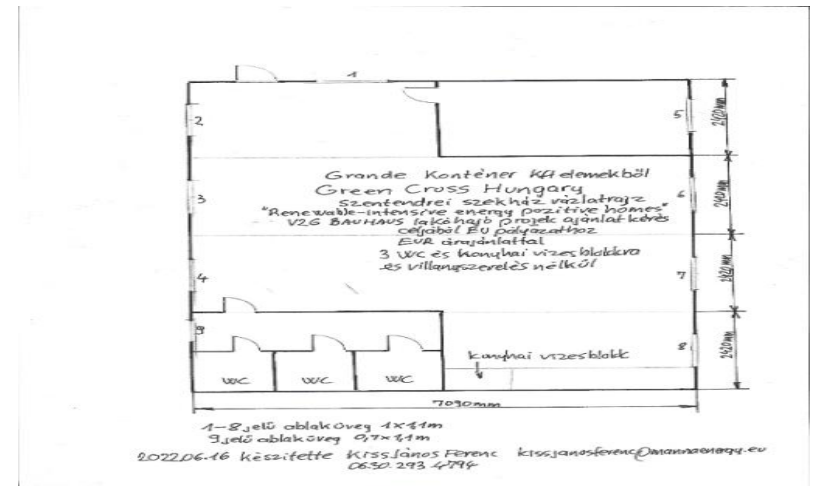 1
2
5
2420mm
Grande Konténer Kft elemekből
Green Cross Hungary
3
szentendrei székház vázlatrajz
6
2420mm
"Renewable-intensive energy pozitive homes"
V2G BAUHAUS lakóhajó projek ajánlat kérés
céljából EU pályázathoz
EUR árajánlattal
3 WC és konyhai vizesblokkra
és villanyszerelés nélkül
4
7
2420mm
9
8
2420mm
konyhai vizes blokk
WC
WC
WC
7090mm
1-8 jelű ablaküveg 1x1,1m
9 jelű ablaküveg 0,7x1,1m
2022.06.16 készítette Kiss János Ferenc kissjanosferenc@mannaenergy.eu
0630.293 4794